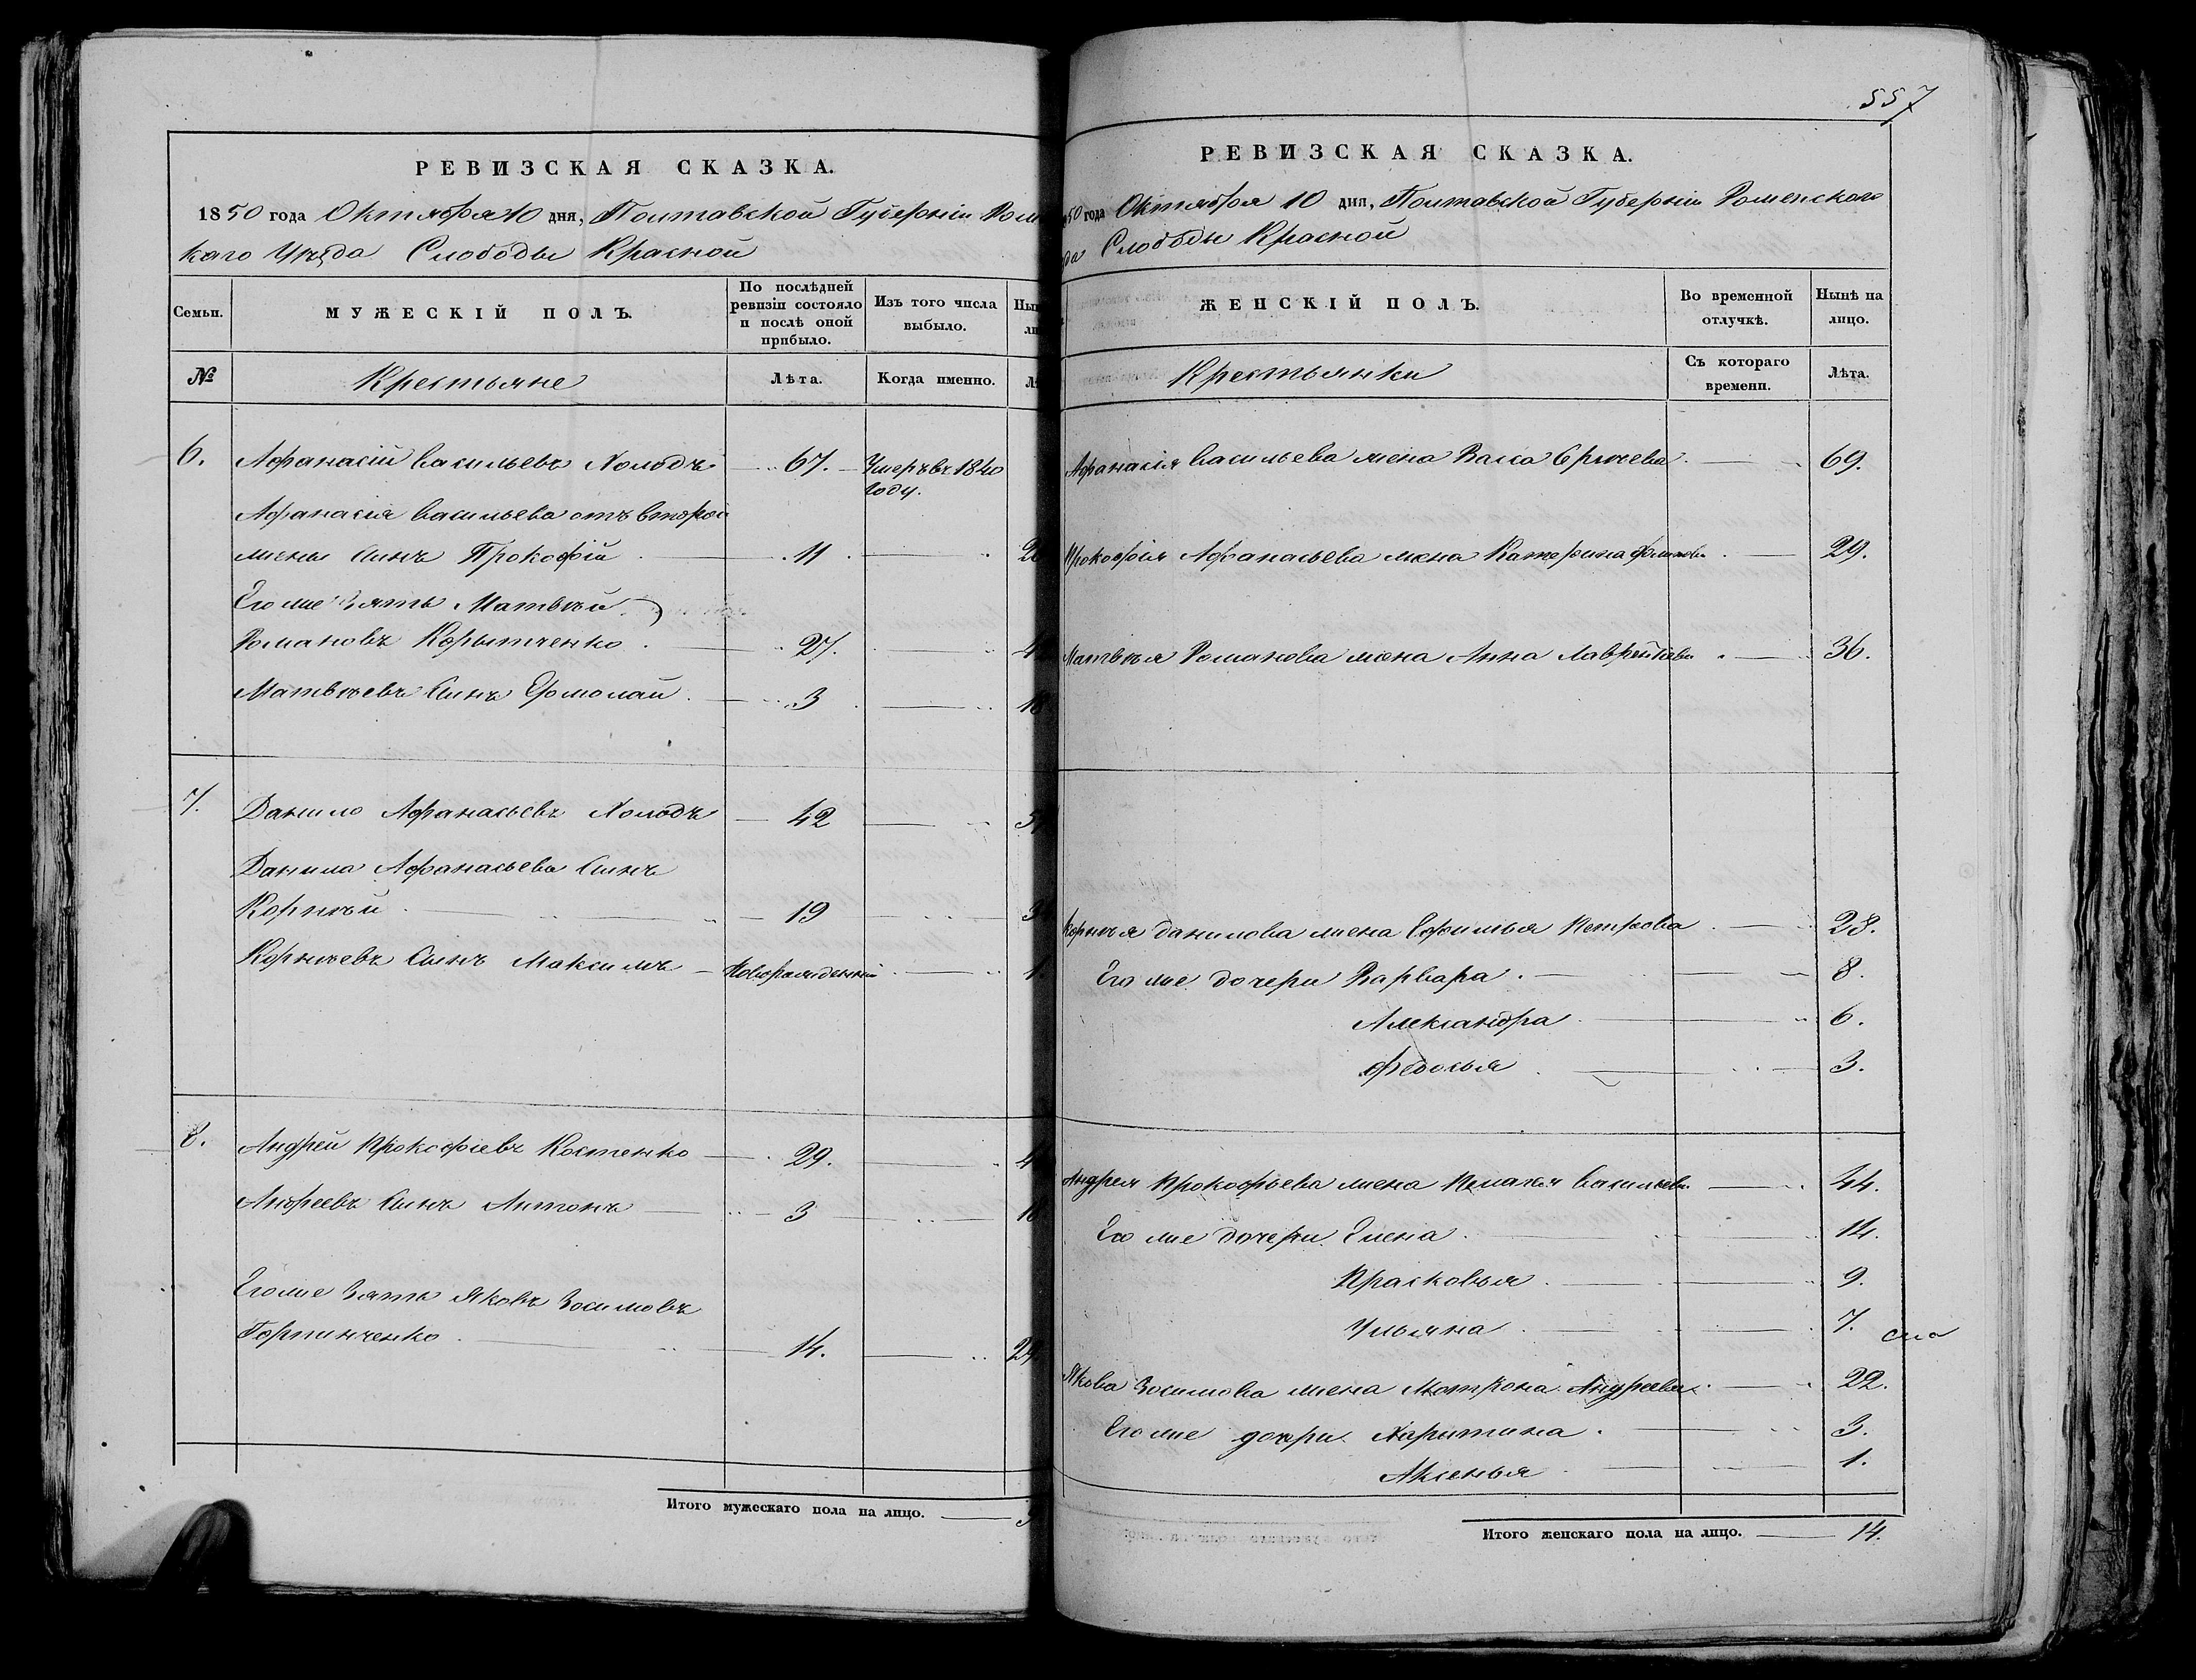 РЕВИЗСКАЯ СКАЗКА.
1850 года Октября 10 дня, Полтавской Губерніи Ром
каго Уѣзда Слободы Красной
Семьи.
МУЖЕСКІЙ ПОЛЪ.
По послѣдней ревизіи состояло и послѣ оной прибыло.
Изъ того числа выбыло.
№
Крестьяне
Лѣта.
Когда именно.
6. Афанасій Васильевъ Холодъ 67. Умеръ въ 1840
году.
Афанасія Васильева отъ второй
жены Сынъ Прокофій 11
Его же Зять Матвѣй
Романовъ Корытченко 27.
Матвѣевъ Сынъ Ермолай 3 18
7. Данило Афанасьевъ Холодъ 42
Данила Афанасьева Сынъ
Корнѣй 19
Корнѣевъ Сынъ Максимъ Новорожденный
8. Андрей Прокофіевъ Костенко 29.
Андреевъ Сынъ Антонъ 3 18
Его же Зять Яковъ Зосимовъ
Горпинченко 14. 29
Итого мужескаго пола на лицо.
557
РЕВИЗСКАЯ СКАЗКА.
50 года Октября 10 дня, Полтавской Губерніи Роменскаго
да Слободы Красной
ЖЕНСКІЙ ПОЛЪ.
Во временной отлучкѣ.
Нынѣ на лицо.
Крестьянки
Съ котораго времени.
Лѣта.
Афанасія Васильева жена Васса 69.
Прокофія Афанасьева жена Катерина 29.
Матвѣя Романова жена Анна Лаврентьева 36.
Корнѣя Данилова жена Ефимья Петрова 28.
Его же дочери Варвара 8.
Александра 6.
Федосья 3.
Андрея Прокофьева жена Пелагея Васильева 44.
Его же дочери Елена 14.
Прасковья 9.
Ульяна 7.
Якова Зосимова жена Мотрона Андреева 22.
Его же дочри Харитина 3.
Аксенья 1.
Итого женскаго пола на лицо. 14.